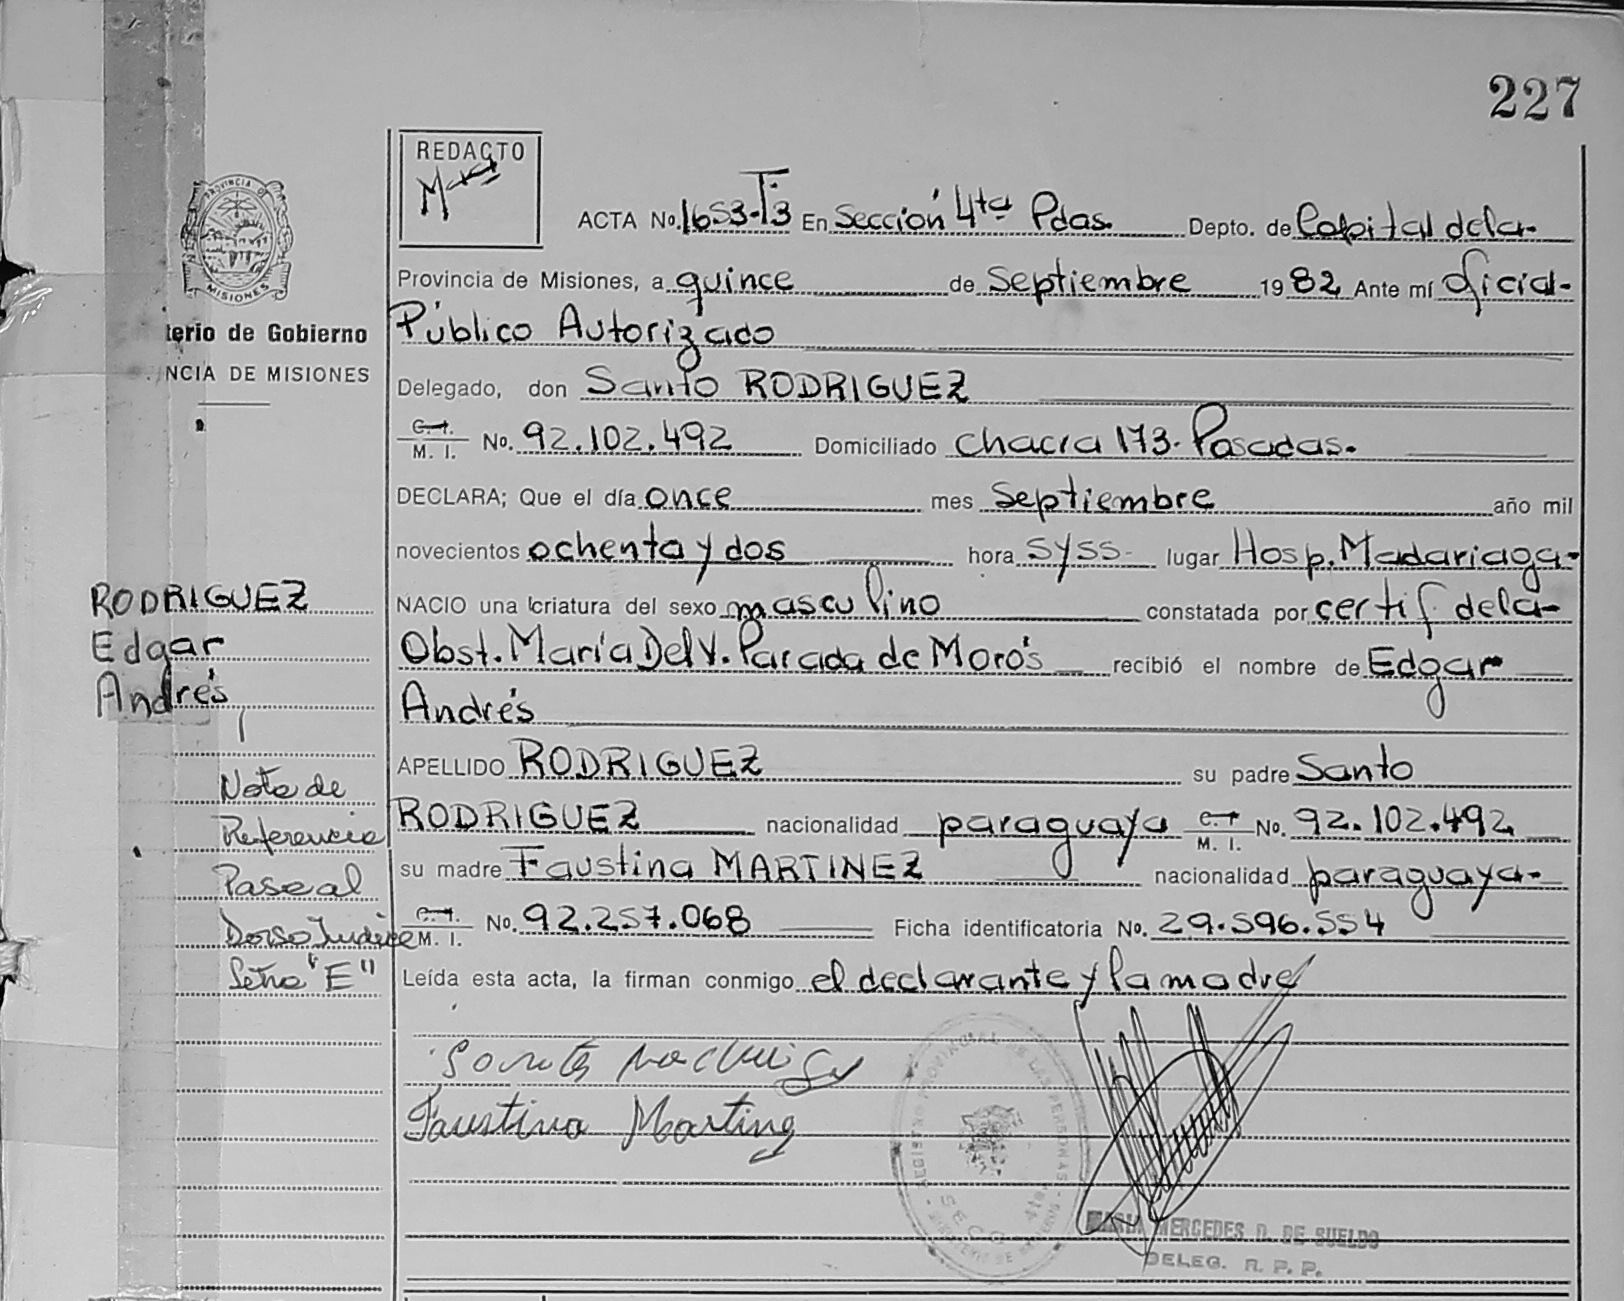 227
REDACTO
ACTA No. 1653-T3 En Sección 4ta Pdas. Depto. de Capital dela-
Provincia de Misiones, a quince de Septiembre 1982 Ante mí Oficial-
Público Autorizado
Delegado, don Santo RODRIGUEZ
C.I. M. I. No. 92.102.492 Domiciliado Chacra 173. Posadas.
DECLARA; Que el día once mes Septiembre año mil
novecientos ochenta y dos hora 5y55- lugar Hosp. Madariaga-
NACIO una criatura del sexo masculino constatada por certif dela-
Obst. María Del V. Parada de Morós recibió el nombre de Edgar
Andrés
APELLIDO RODRIGUEZ su padre Santo
RODRIGUEZ nacionalidad paraguaya C.I. M. I. No. 92.102.492
su madre Faustina MARTINEZ nacionalidad paraguaya-
C.I. M. I. No. 92.257.068 Ficha identificatoria No. 29.596.554
Leída esta acta, la firman conmigo el declarante y la madre
Faustina Martinez
REGISTRO PROVINCIAL DE LAS PERSONAS
MERCEDES D. DE SUELDO
DELEG. R. P. P.
PROVINCIA D
MISIONES
terio de Gobierno
NCIA DE MISIONES
RODRIGUEZ
Edgar
Andrés
Nota de
Referencia
Pase al
Dorso Indice
Letra "E"